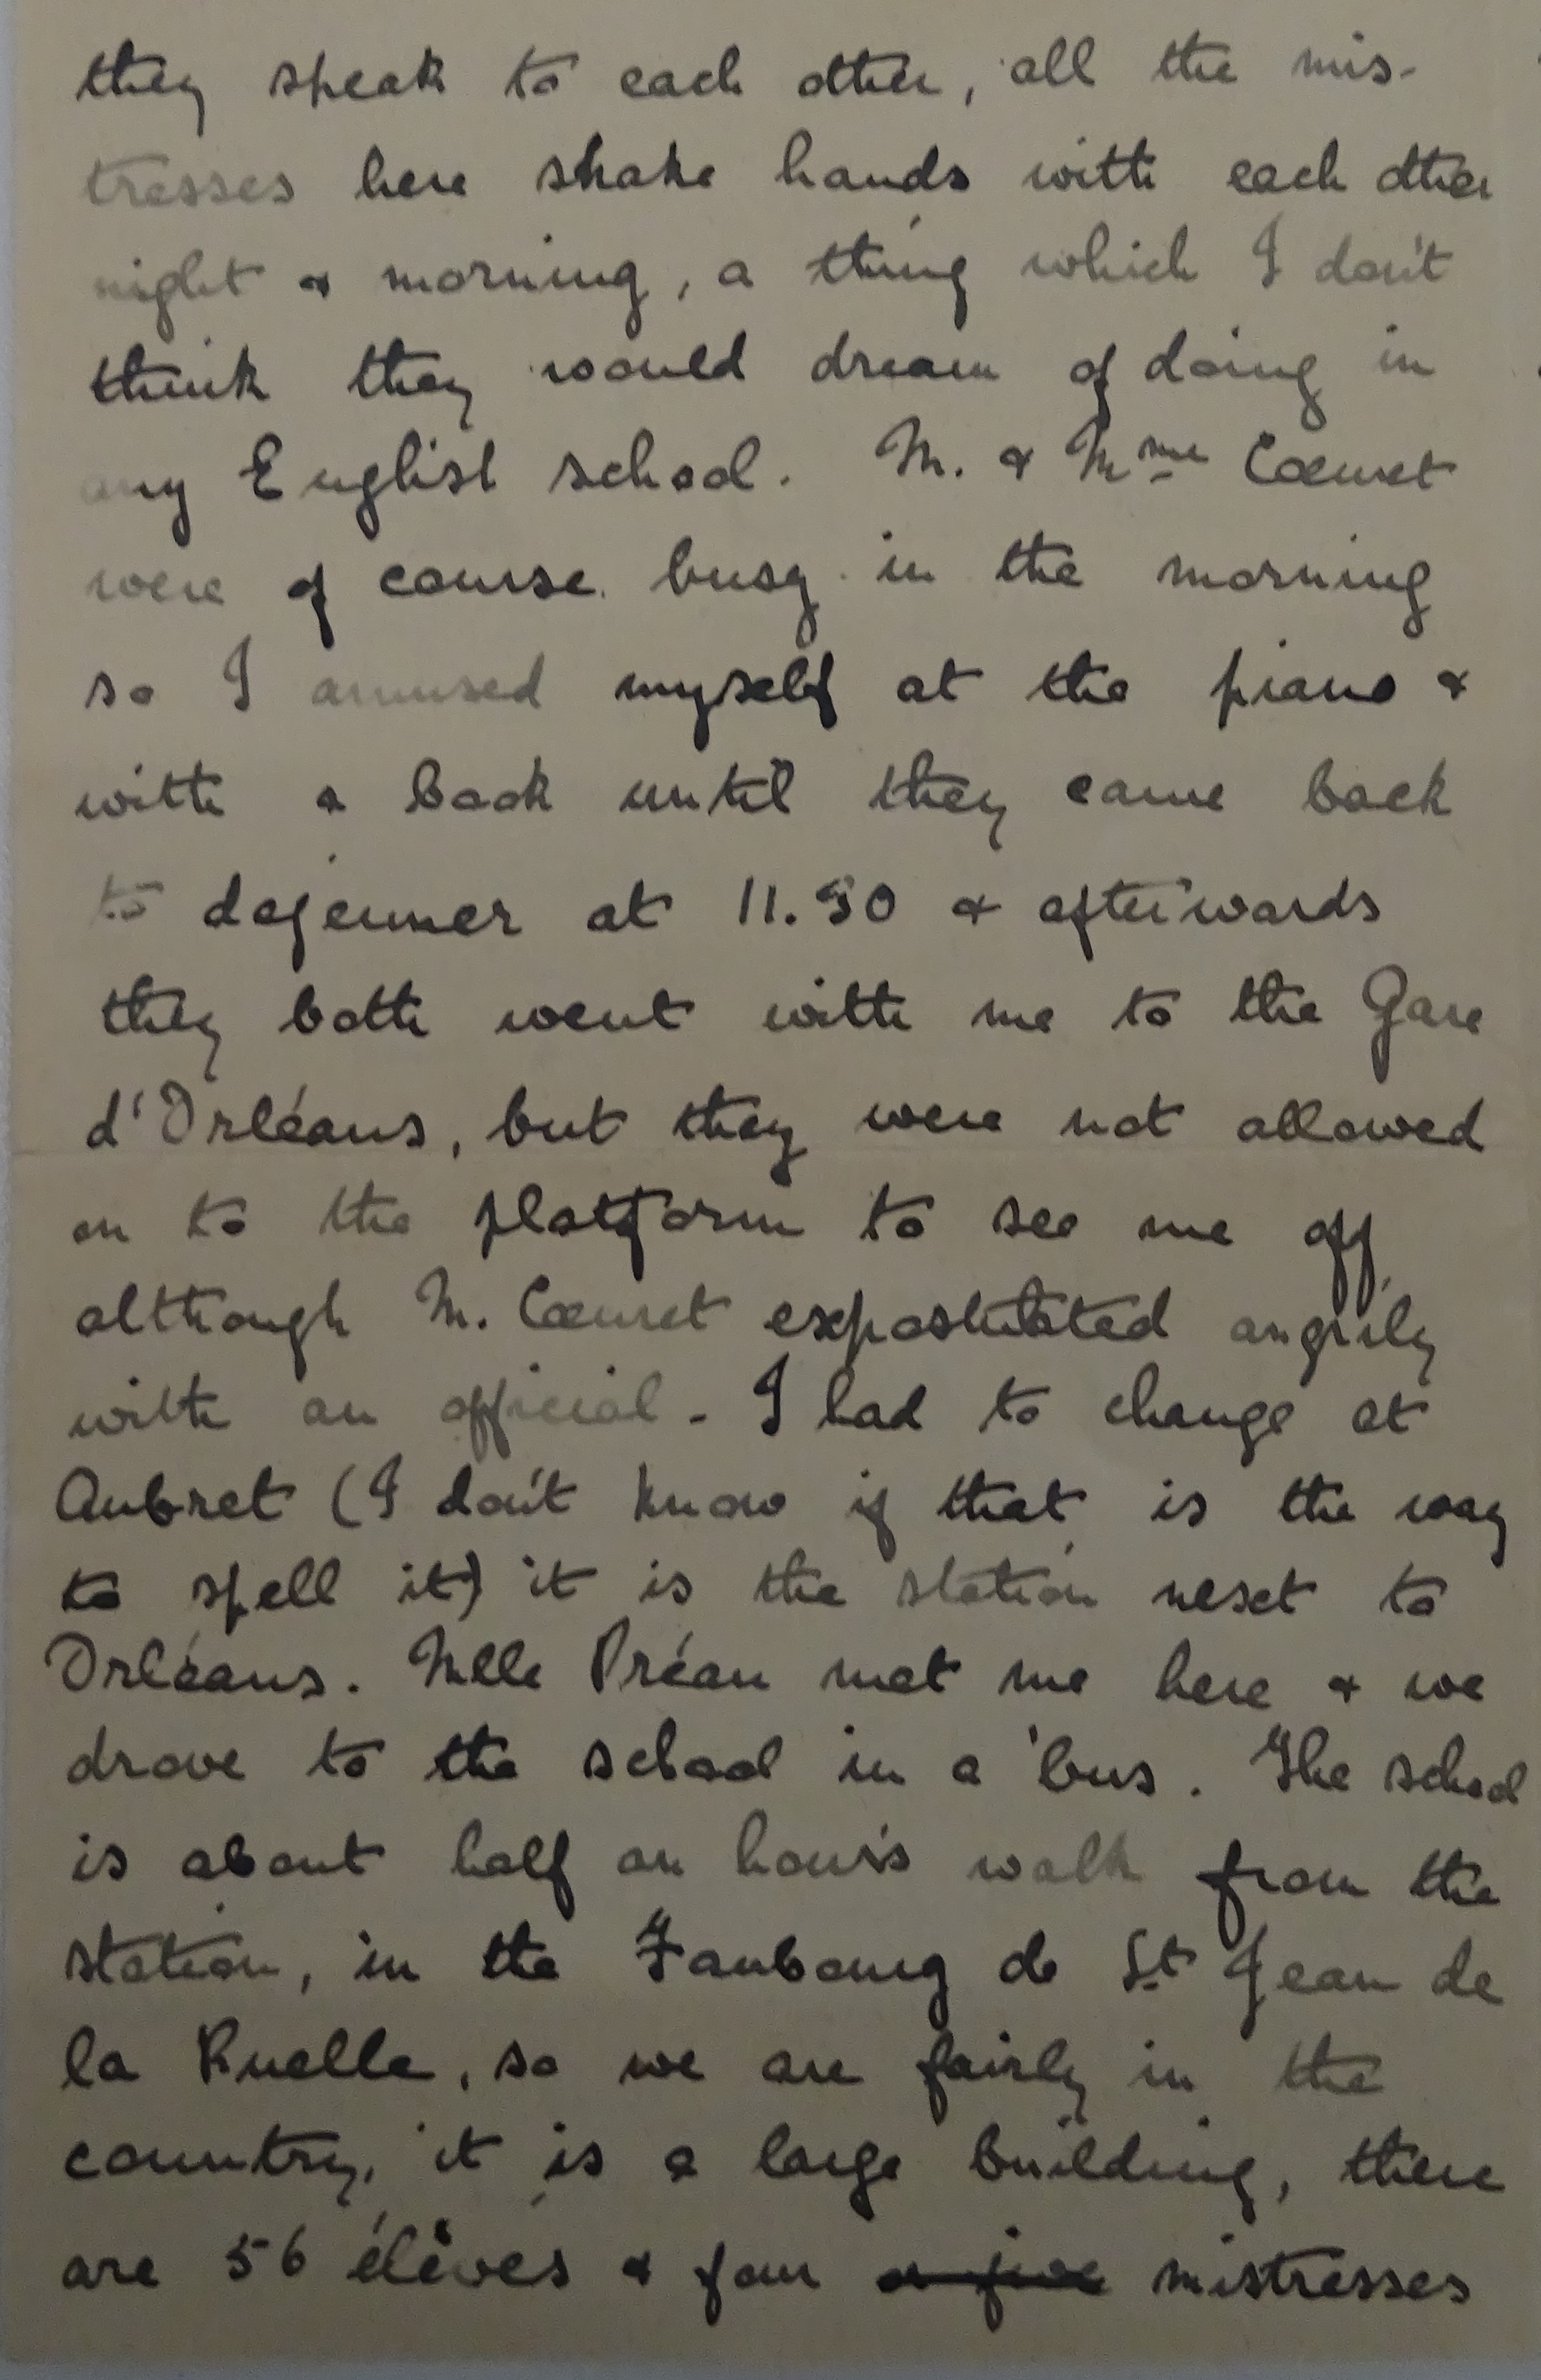 they speak to each other, all the mis-
tresses here shake hands with each other
night & morning, a thing which I don't
think they would dream of doing in
any English school. M. & Mme Cœuret
were of course busy in the morning
so I amused myself at the piano &
with a book until they came back
to dejeuner at 11.30 & afterwards
they both went with me to the Gare
d'Orléans, but they were not allowed
on to the platform to see me off,
although M. Cœuret expostulated angrily
with an official - I had to change at
Aubret (I don't know if that is the way
to spell it) it is the station next to
Orléans. Melle Préau met me here & we
drove to the school in a 'bus. The school
is about half an hour's walk from the
station, in the Faubourg de St Jean de
la Ruelle, so we are fairly in the
country, it is a large building, there
are 56 élèves & four or five mistresses